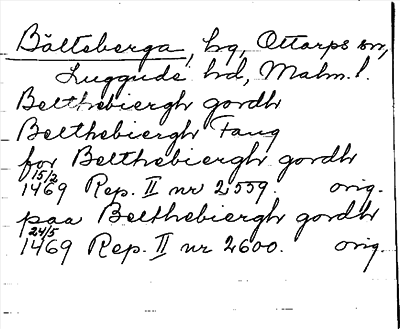 Bältsberga, hg, Ottarps sn,
Luggude hd, Malm. l.
Belthebiergh gordh
Belthebiergh Fang
for Belthebiergh gordh
15/2 1469 Rep. II nr 2559. orig.
paa Belthebiergh gordh
24/5 1469 Rep. II nr 2600. orig.